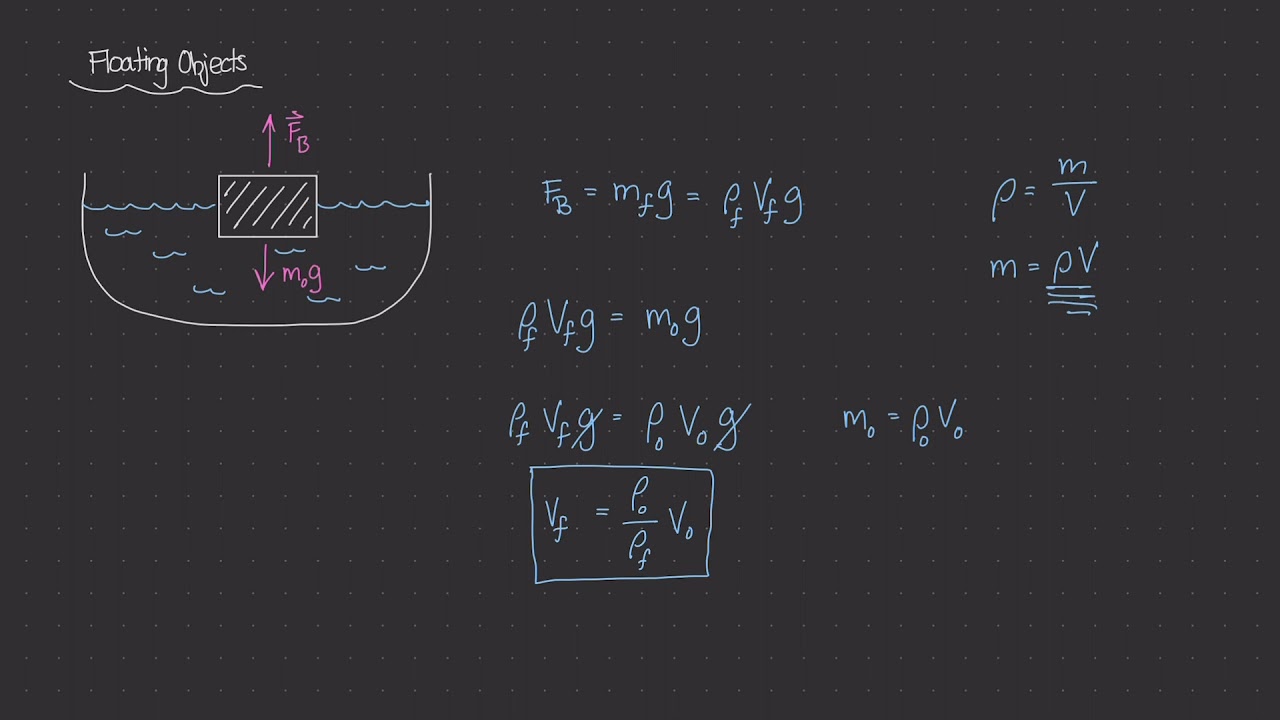 Floating Objects
F⃗_B
m₀g
F_B = m_f g = ρ_f V_f g
ρ = m/V
m = ρV
ρ_f V_f g = m₀g
ρ_f V_f g = ρ₀ V₀ g
m₀ = ρ₀ V₀
V_f = ρ₀/ρ_f V₀